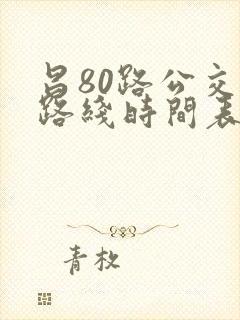 昌80路公交
路线时間表
青枚